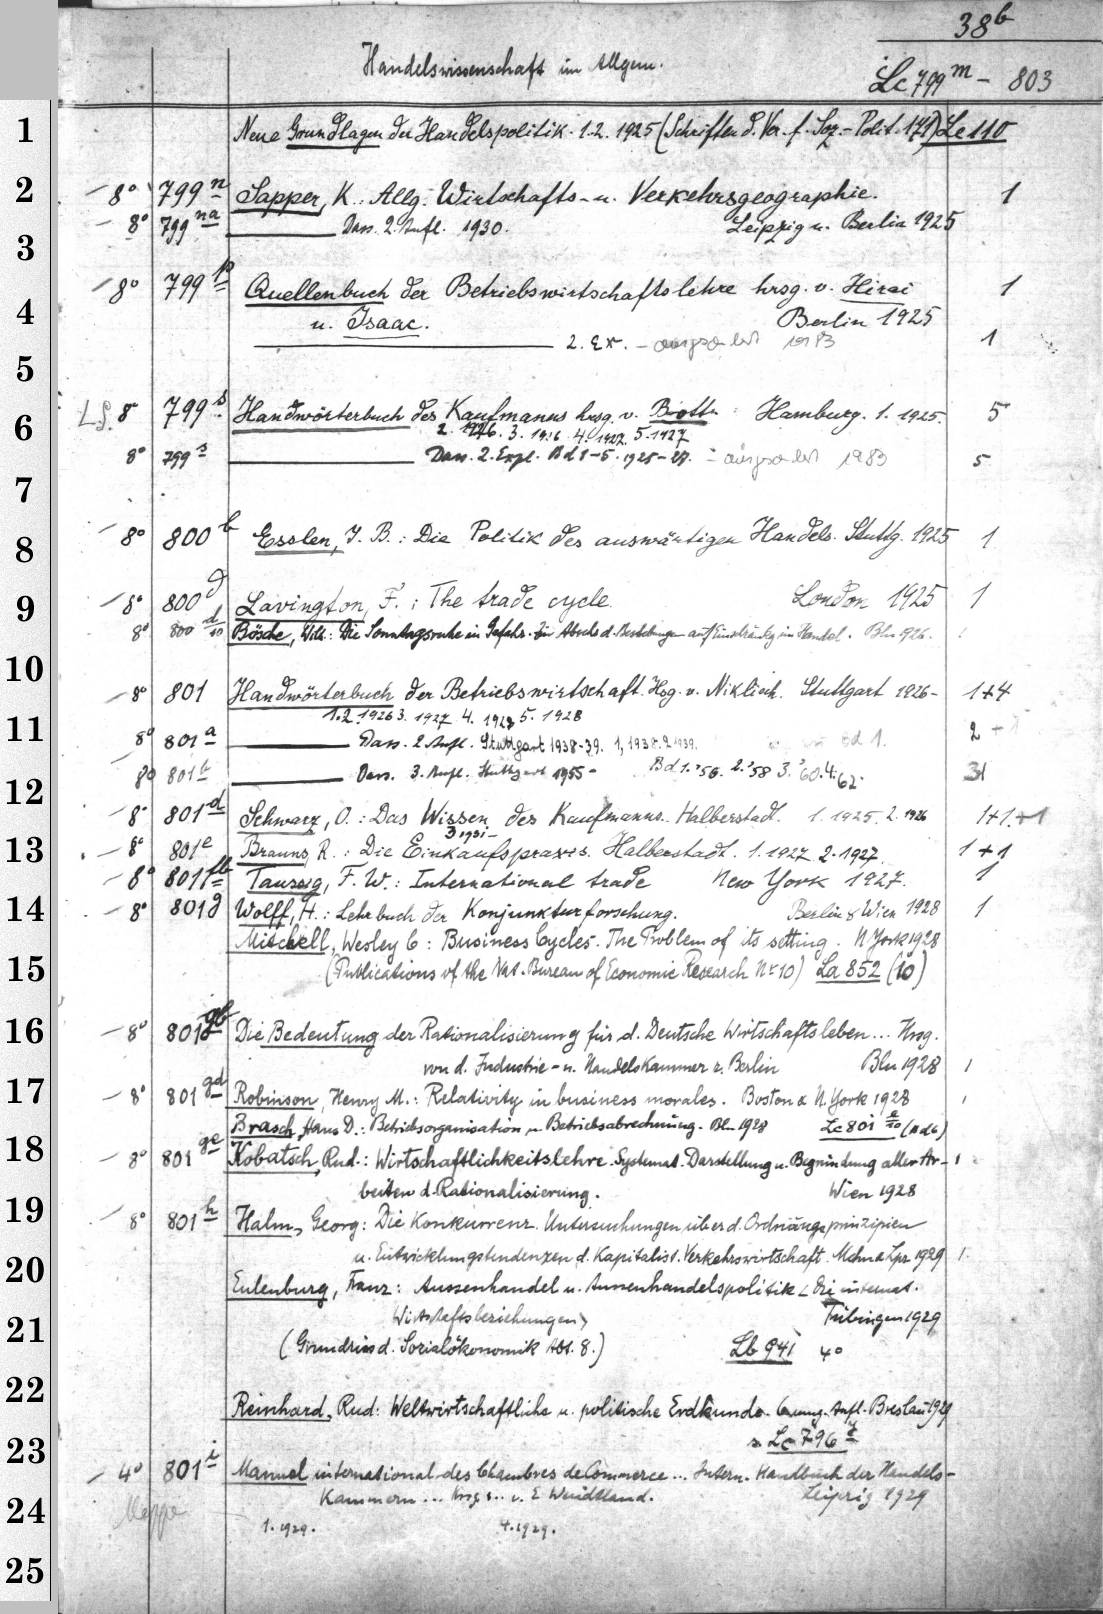 38b
Handelswissenschaft im Allgem.
Lc 799m – 803
1
Neue Grundlagen der Handelspolitik. 1.2. 1925 (Schriften d. Ver. f. Soz.-Polit. 171) Lc 110
2
8° 799n Sapper, K.: Allg. Wirtschafts- u. Verkehrsgeographie. 1
8° 799na Dass. 2. Aufl. 1930. Leipzig u. Berlin 1925
3
8° 799p Quellenbuch der Betriebswirtschaftslehre hrsg. v. Hirai 1
4
u. Isaac. Berlin 1925
2. Ex. – 1983 1
5
LS. 8° 799s Handwörterbuch des Kaufmanns hrsg. v. Bott. Hamburg. 1. 1925. 5
6
2. 1926. 3. 1926 4. 1927. 5. 1927
8° 799s Dass. 2. Expl. Bd 1–5. 1925–27. – 1983 5
7
8° 800b Esslen, J. B.: Die Politik des auswärtigen Handels. Stuttg. 1925 1
8
8° 800d Lavington, F.: The trade cycle. London 1925 1
9
8° 800d/10 Bösche, Wilh.: Die Sonntagsruhe in Gefahr. im Handel. Bln 1926.
10
8° 801 Handwörterbuch der Betriebswirtschaft. Hsg. v. Nicklisch. Stuttgart 1926– 1+4
1.2. 1926 3. 1927 4. 1928 5. 1928
11
8° 801a Dass. 2. Aufl. Stuttgart 1938–39. 1, 1938. 2. 1939. Bd 1. 2
8° 801b Dass. 3. Aufl. Stuttgart 1955– Bd 1. '56. 2. '58 3. '60. 4. '62.
12
8° 801d Schwarz, O.: Das Wissen des Kaufmanns. Halberstadt. 1. 1925. 2. 1926 1+1+1
3 1931–
13
8° 801e Brauns, R.: Die Einkaufspraxis. Halberstadt. 1. 1927. 2. 1927. 1+1
8° 801fb Taussig, F. W.: International trade New York 1927. 1
14
8° 801g Wolff, H.: Lehrbuch der Konjunkturforschung. Berlin & Wien 1928 1
Mitchell, Wesley C: Business Cycles. The Problem of its setting. N York 1928
15
(Publications of the Nat. Bureau of Economic Research Nr 10) La 852 (10)
16
8° 801gb Die Bedeutung der Rationalisierung für d. Deutsche Wirtschaftsleben... Hrsg.
von d. Industrie- u. Handelskammer z. Berlin Bln 1928 1
17
8° 801gd Robinson, Henry M.: Relativity in business morales. Boston & N. York 1928 1
Brasch, Hans D.: Betriebsorganisation u. Betriebsabrechnung. Bln 1928 Lc 801 a/10
18
8° 801ge Kobatsch, Rud.: Wirtschaftlichkeitslehre. Systemat. Darstellung u. Begründung aller Ar- 1
beiten d. Rationalisierung. Wien 1928
19
8° 801h Halm, Georg: Die Konkurrenz. Untersuchungen über d. Ordnungsprinzipien
u. Entwicklungstendenzen d. Kapitalist. Verkehrswirtschaft. Mchn & Lpz 1929 1
20
Eulenburg, Franz: Aussenhandel u. Aussenhandelspolitik internat.
Wirtschaftsbeziehungen) Tübingen 1929
21
(Grundriss d. Sozialökonomik Abt. 8.) Lb 941 4°
22
Reinhard, Rud: Weltwirtschaftliche u. politische Erdkunde. Aufl. Breslau 1929
23
Lc 796
4° 801i Manuel international des Chambres de Commerce... Intern. Handbuch der Handels-
Kammern ... Leipzig 1929
24
Mappe
1. 1929. 4. 1929.
25